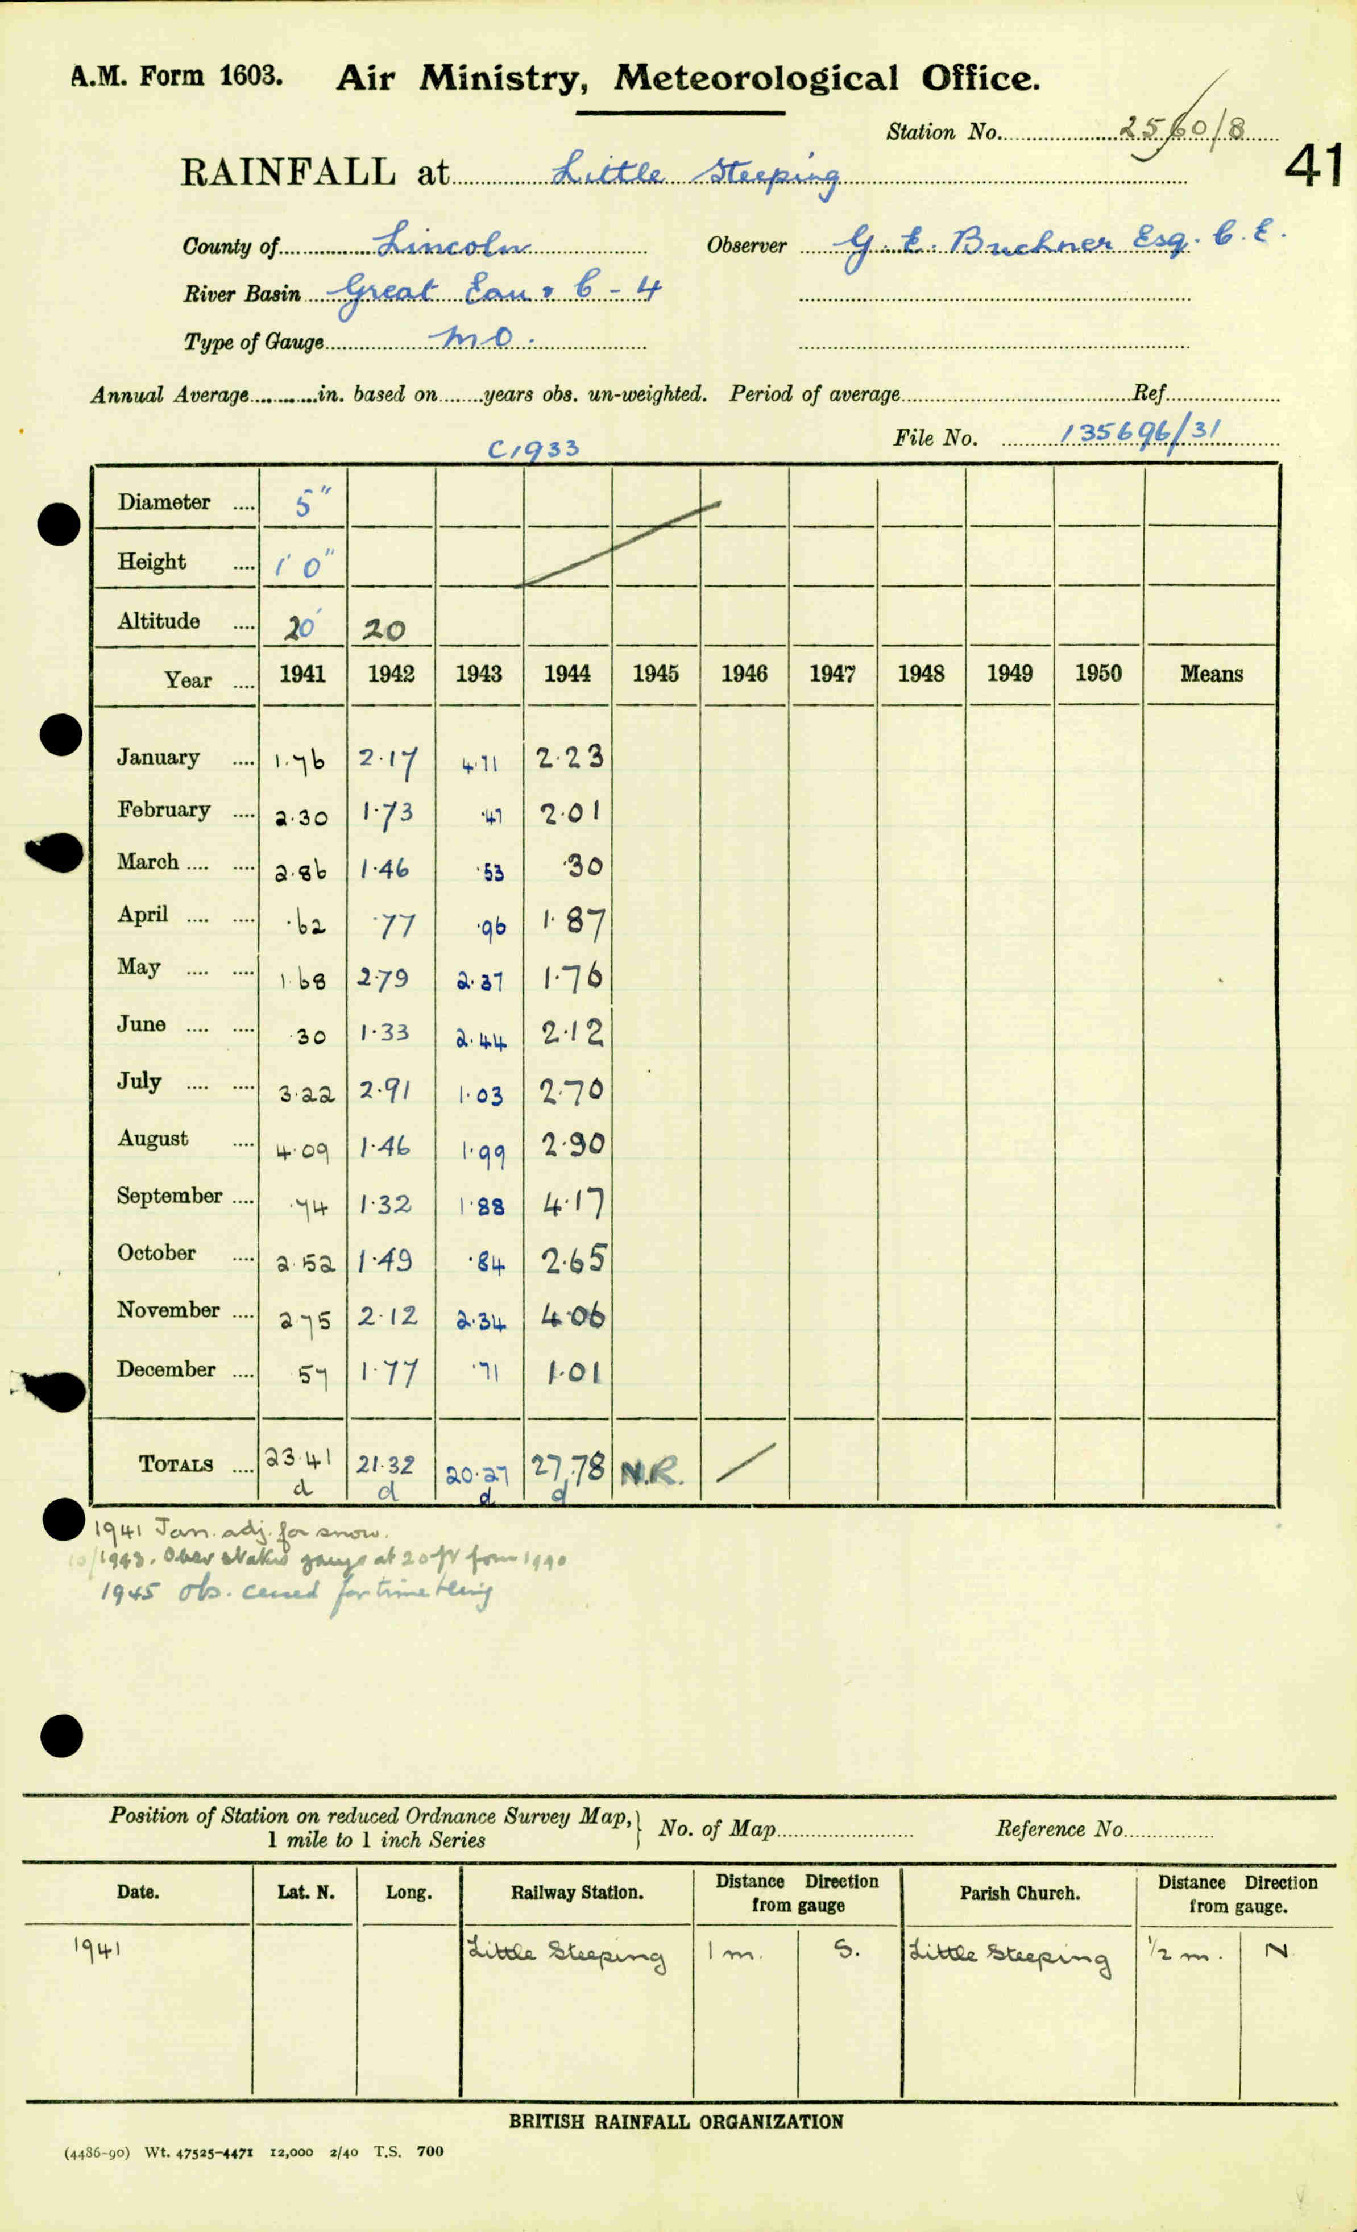 A.M. Form 1603. Air Ministry, Meteorological Office.
Station No. 2560/8
41
RAINFALL at Little Steeping
County of Lincoln Observer G. E. Buchner Esq. C.E.
River Basin Great Eau & C - 4
Type of Gauge MO.
Annual Average in. based on years obs. un-weighted. Period of average Ref.
C1933 File No. 135696/31
Diameter 5"
Height 1' 0"
Altitude 20' 20
Year 1941 1942 1943 1944 1945 1946 1947 1948 1949 1950 Means
January 1.76 2.17 4.71 2.23
February 2.30 1.73 .47 2.01
March 2.86 1.46 .53 .30
April .62 .77 .96 1.87
May 1.68 2.79 2.37 1.76
June .30 1.33 2.44 2.12
July 3.22 2.91 1.03 2.70
August 4.09 1.46 1.99 2.90
September .74 1.32 1.88 4.17
October 2.52 1.49 .84 2.65
November 2.75 2.12 2.34 4.06
December 57 1.77 .71 1.01
TOTALS 23.41 21.32 20.27 27.78 N.R.
d d d d
1941 Jan. adj. for snow.
10/1943. Obser states gauge at 20 ft from 1940
1945 ob. ceased for time being
Position of Station on reduced Ordnance Survey Map, 1 mile to 1 inch Series No. of Map Reference No.
Date. Lat. N. Long. Railway Station. Distance Direction from gauge Parish Church. Distance Direction from gauge.
1941 Little Steeping 1 m. S. Little Steeping 1/2 m. N
BRITISH RAINFALL ORGANIZATION
(4486-90) Wt. 47525-4471 12,000 2/40 T.S. 700